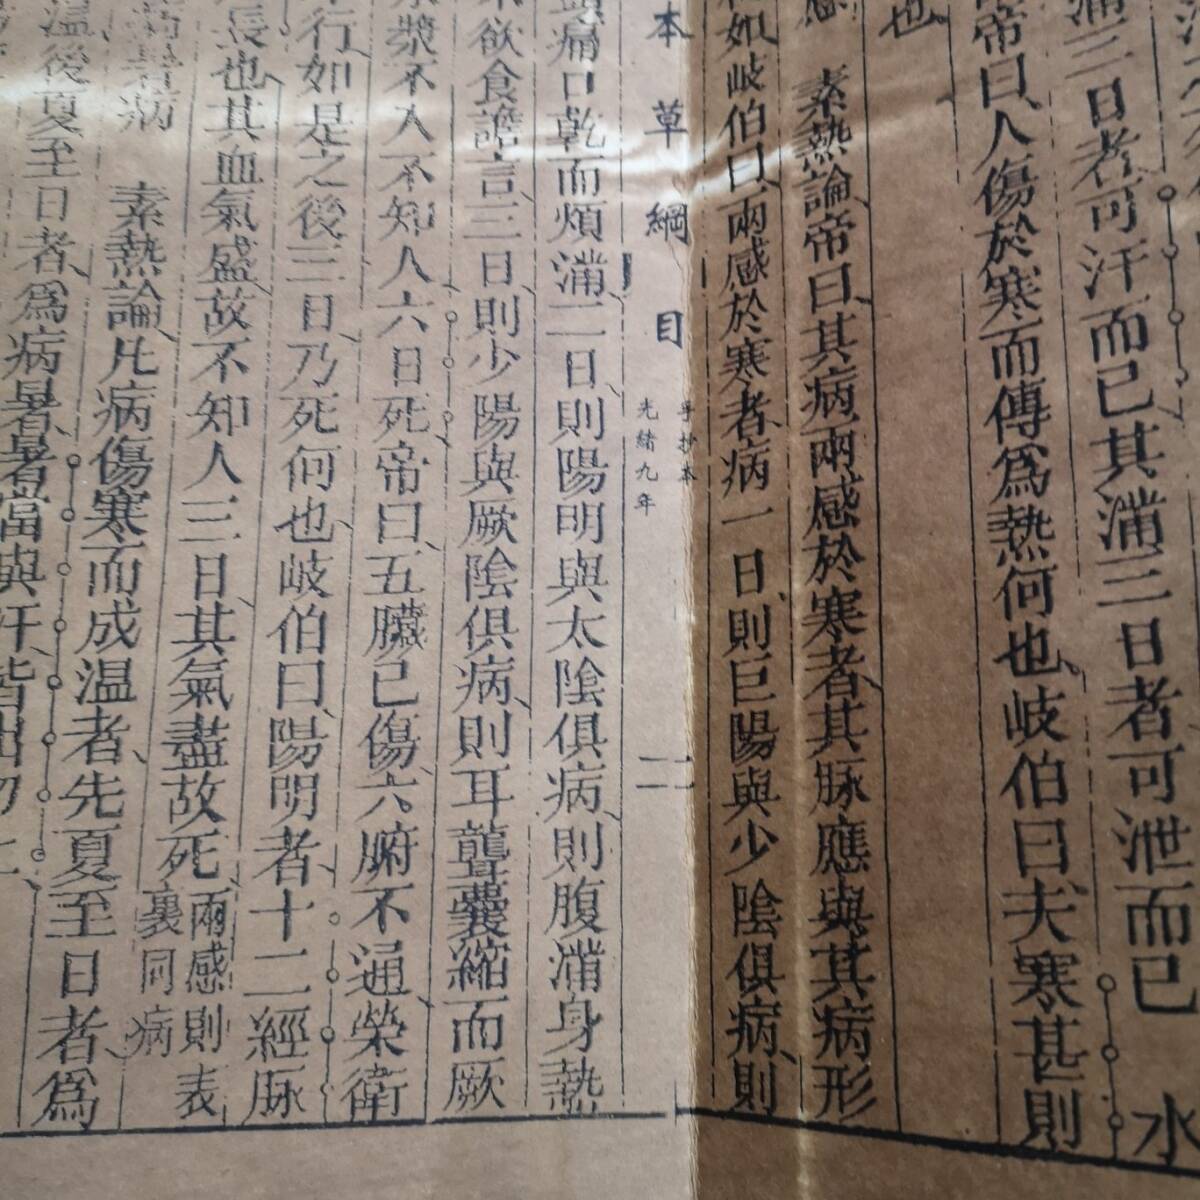 水
滿三日者可汗而已其滿三日者可泄而已
帝曰人傷於寒而傳爲熱何也岐伯曰夫寒甚則
也
素熱論帝曰其病兩感於寒者其脉應與其病形
如岐伯曰兩感於寒者病一日則巨陽與少陰俱病則
本草綱目
手抄本
光緒九年
二
頭痛口乾而煩滿二日則陽明與太陰俱病則腹滿身熱
不欲食譫言三日則少陽與厥陰俱病則耳聾囊縮而厥
水漿不入不知人六日死帝曰五臟已傷六腑不通榮衛
不行如是之後三日乃死何也岐伯曰陽明者十二經脉
之長也其血氣盛故不知人三日其氣盡故死兩感則表
裏同病
病暑病
素熱論凡病傷寒而成温者先夏至日者爲
病温後夏至日者爲病暑暑當與汗皆出勿止